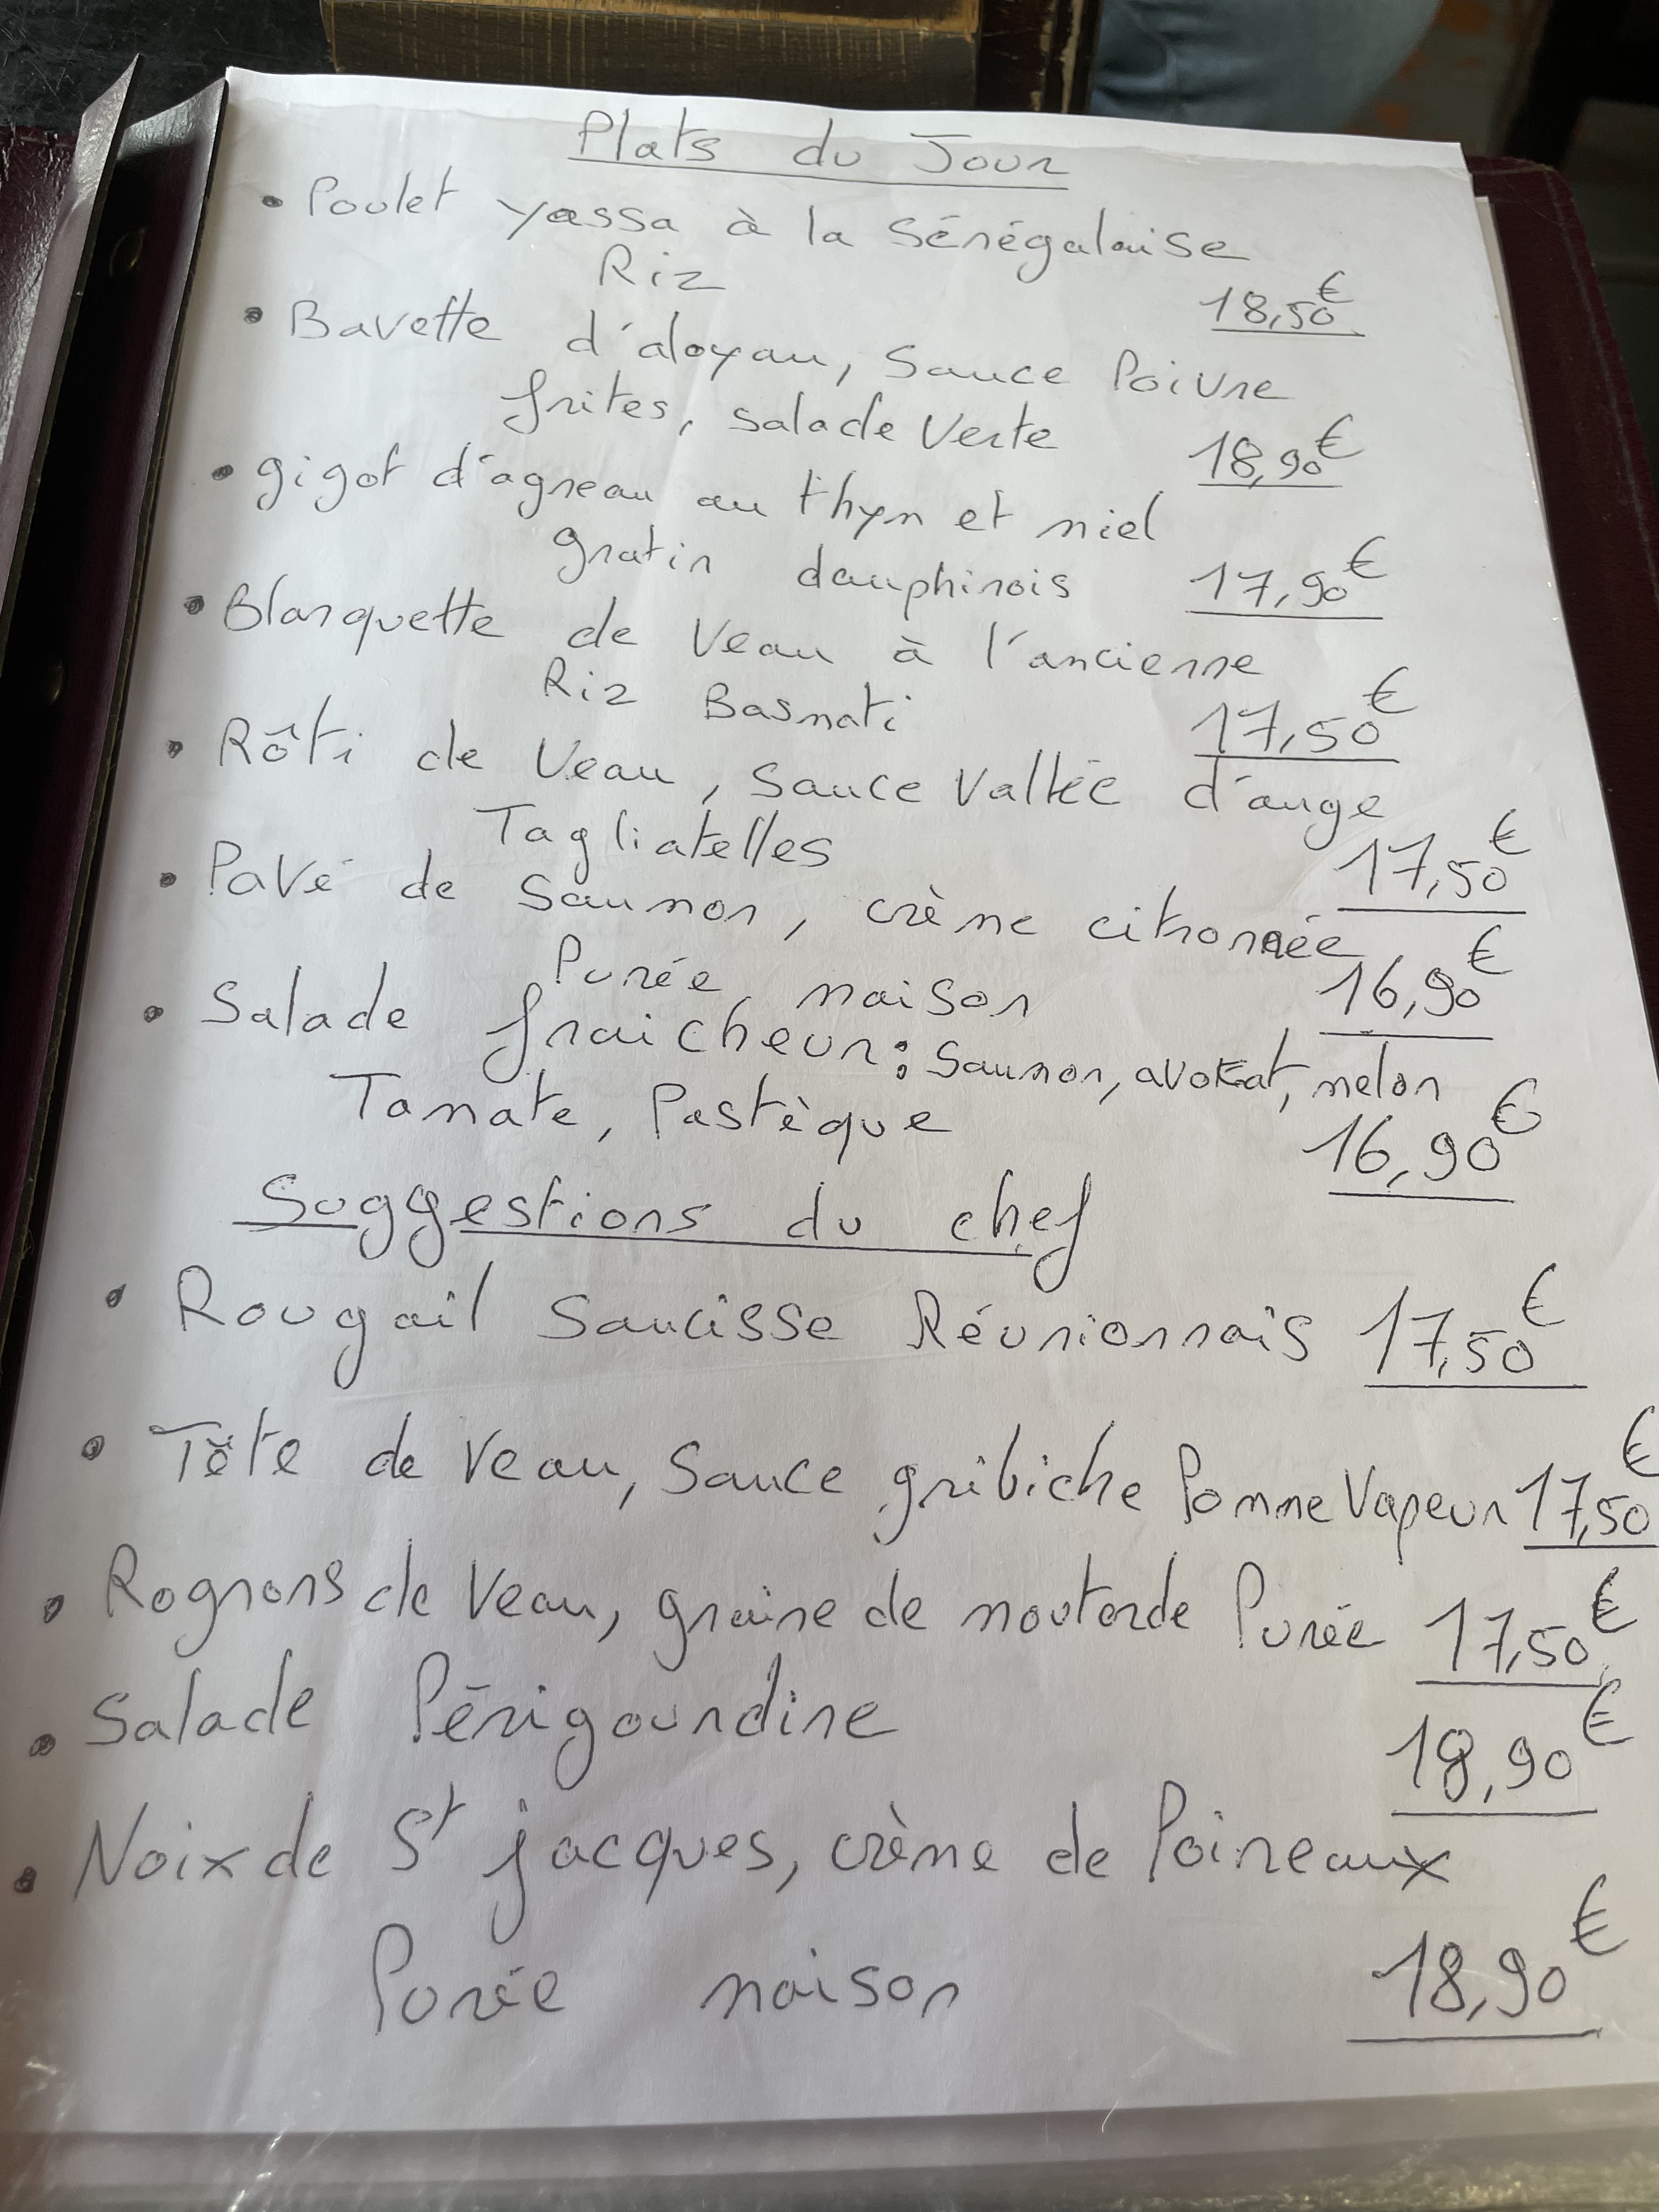 Plats du Jour
• Poulet yassa à la Sénégalaise
Riz 18,50€
• Bavette d'aloyau, Sauce Poivre
frites, salade Verte 18,90€
• gigot d'agneau au thym et miel
gratin dauphinois 17,90€
• Blanquette de Veau à l'ancienne
Riz Basmati 17,50€
• Rôti de Veau, Sauce Vallée d'auge
Tagliatelles 17,50€
• Pavé de Saumon, crème citronnée
Purée maison 16,90€
• Salade fraicheur: Saumon, avokat, melon
Tomate, Pastèque 16,90€
Suggestions du chef
• Rougail Saucisse Réunionnais 17,50€
• Tête de Veau, Sauce gribiche Pomme Vapeur 17,50€
• Rognons de Veau, graine de moutarde Purée 17,50€
• Salade Périgourdine 18,90€
• Noix de St jacques, crème de Poireaux
Purée maison 18,90€